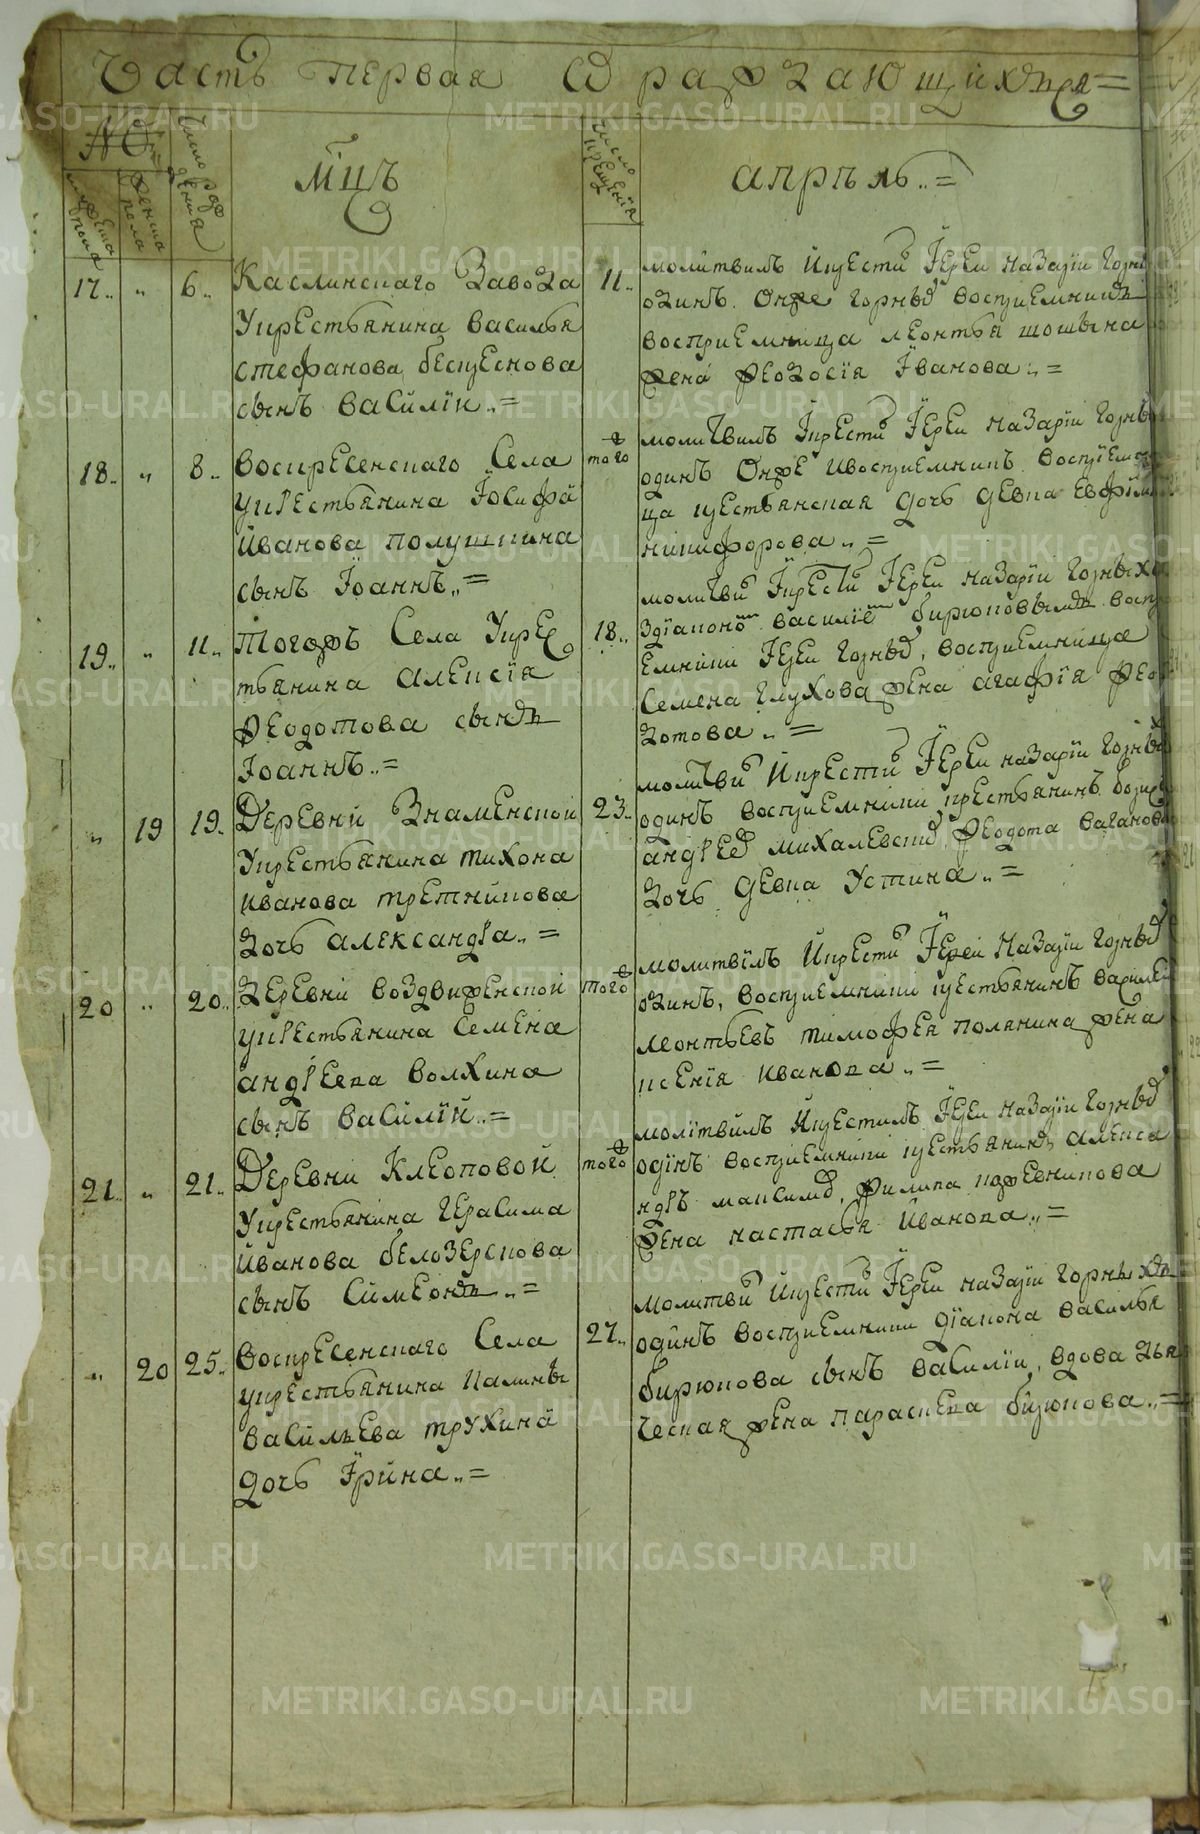 Часть первая ѡ раждающихся =
№
мужеска пола
женска пола
число рождения
мц҃ъ
число крещенїя
апрѣль „=
17 „ „ 6 „
Каслинскаго Завода
укрестьянина василья
стефанова беспреснова
сынъ василїи „=
11 „
молитвилъ икрести їереи назарїи горн
одинъ. Онже горных восприемникъ
восприемница леонтья шошына
жена феодосїя їванова „=
18 „ „ 8 „
воскресенскаго Села
укрестьянина їосифа
иванова полушкина
сынъ їоаннъ „=
того ж
молитвилъ їкрести їереи назарїи горны
одинъ Онже ивосприемникъ воспрїем
ца крестьянская дочь девка евфїм
никифорова „=
19 „ „ 11 „
Тогожъ Села укрес
тьянина алексїя
феодотова сынъ
їоаннъ „=
18 „
молитви їкрести їереи назарїи горных
здїакономъ василиемъ бирюковымъ воспр
емники їереи горных, восприемница
Семена глухова жена агафїя фео
дотова „=
„ 19 19 „
Деревни Знаменской
укрестьянина тихона
иванова третникова
дочь александра „=
23 „
молитви икрести їереи назарїи горных
одинъ восприемники крестьянинъ
андреи михалевских феодота ваганова
дочь девка устина „=
20 „ 20 „
деревни воздвиженской
укрестьянина семена
андреева волхина
сынъ василїй „=
того ж
молитвїлъ икрести їерей назарїи горных
одинъ, восприемники крестьянинъ василеи
леонтьевъ тимофея полянина жена
ксенїя иванова „=
21 „ „ 21 „
Деревни Клеоповой
укрестьянина герасима
иванова белозерскова
сынъ Симеонъ „=
того ж
молїтвилъ икрестилъ їереи назарїи горных
одїнъ восприемники крестьянинъ алекса
ндръ максимов, филипа кожевникова
жена настасья иванова „=
„ 20 25 „
воскресенскаго Села
укрестьянина калины
васильева трухина
дочь їрина „=
27 „
молитви икрести їереи назарїи горныхъ
одинъ восприемники дїакона василья
бирюкова сынъ василїи, вдова дья
ческая жена параскева бирюкова „=
METRIKI.GASO-URAL.RU